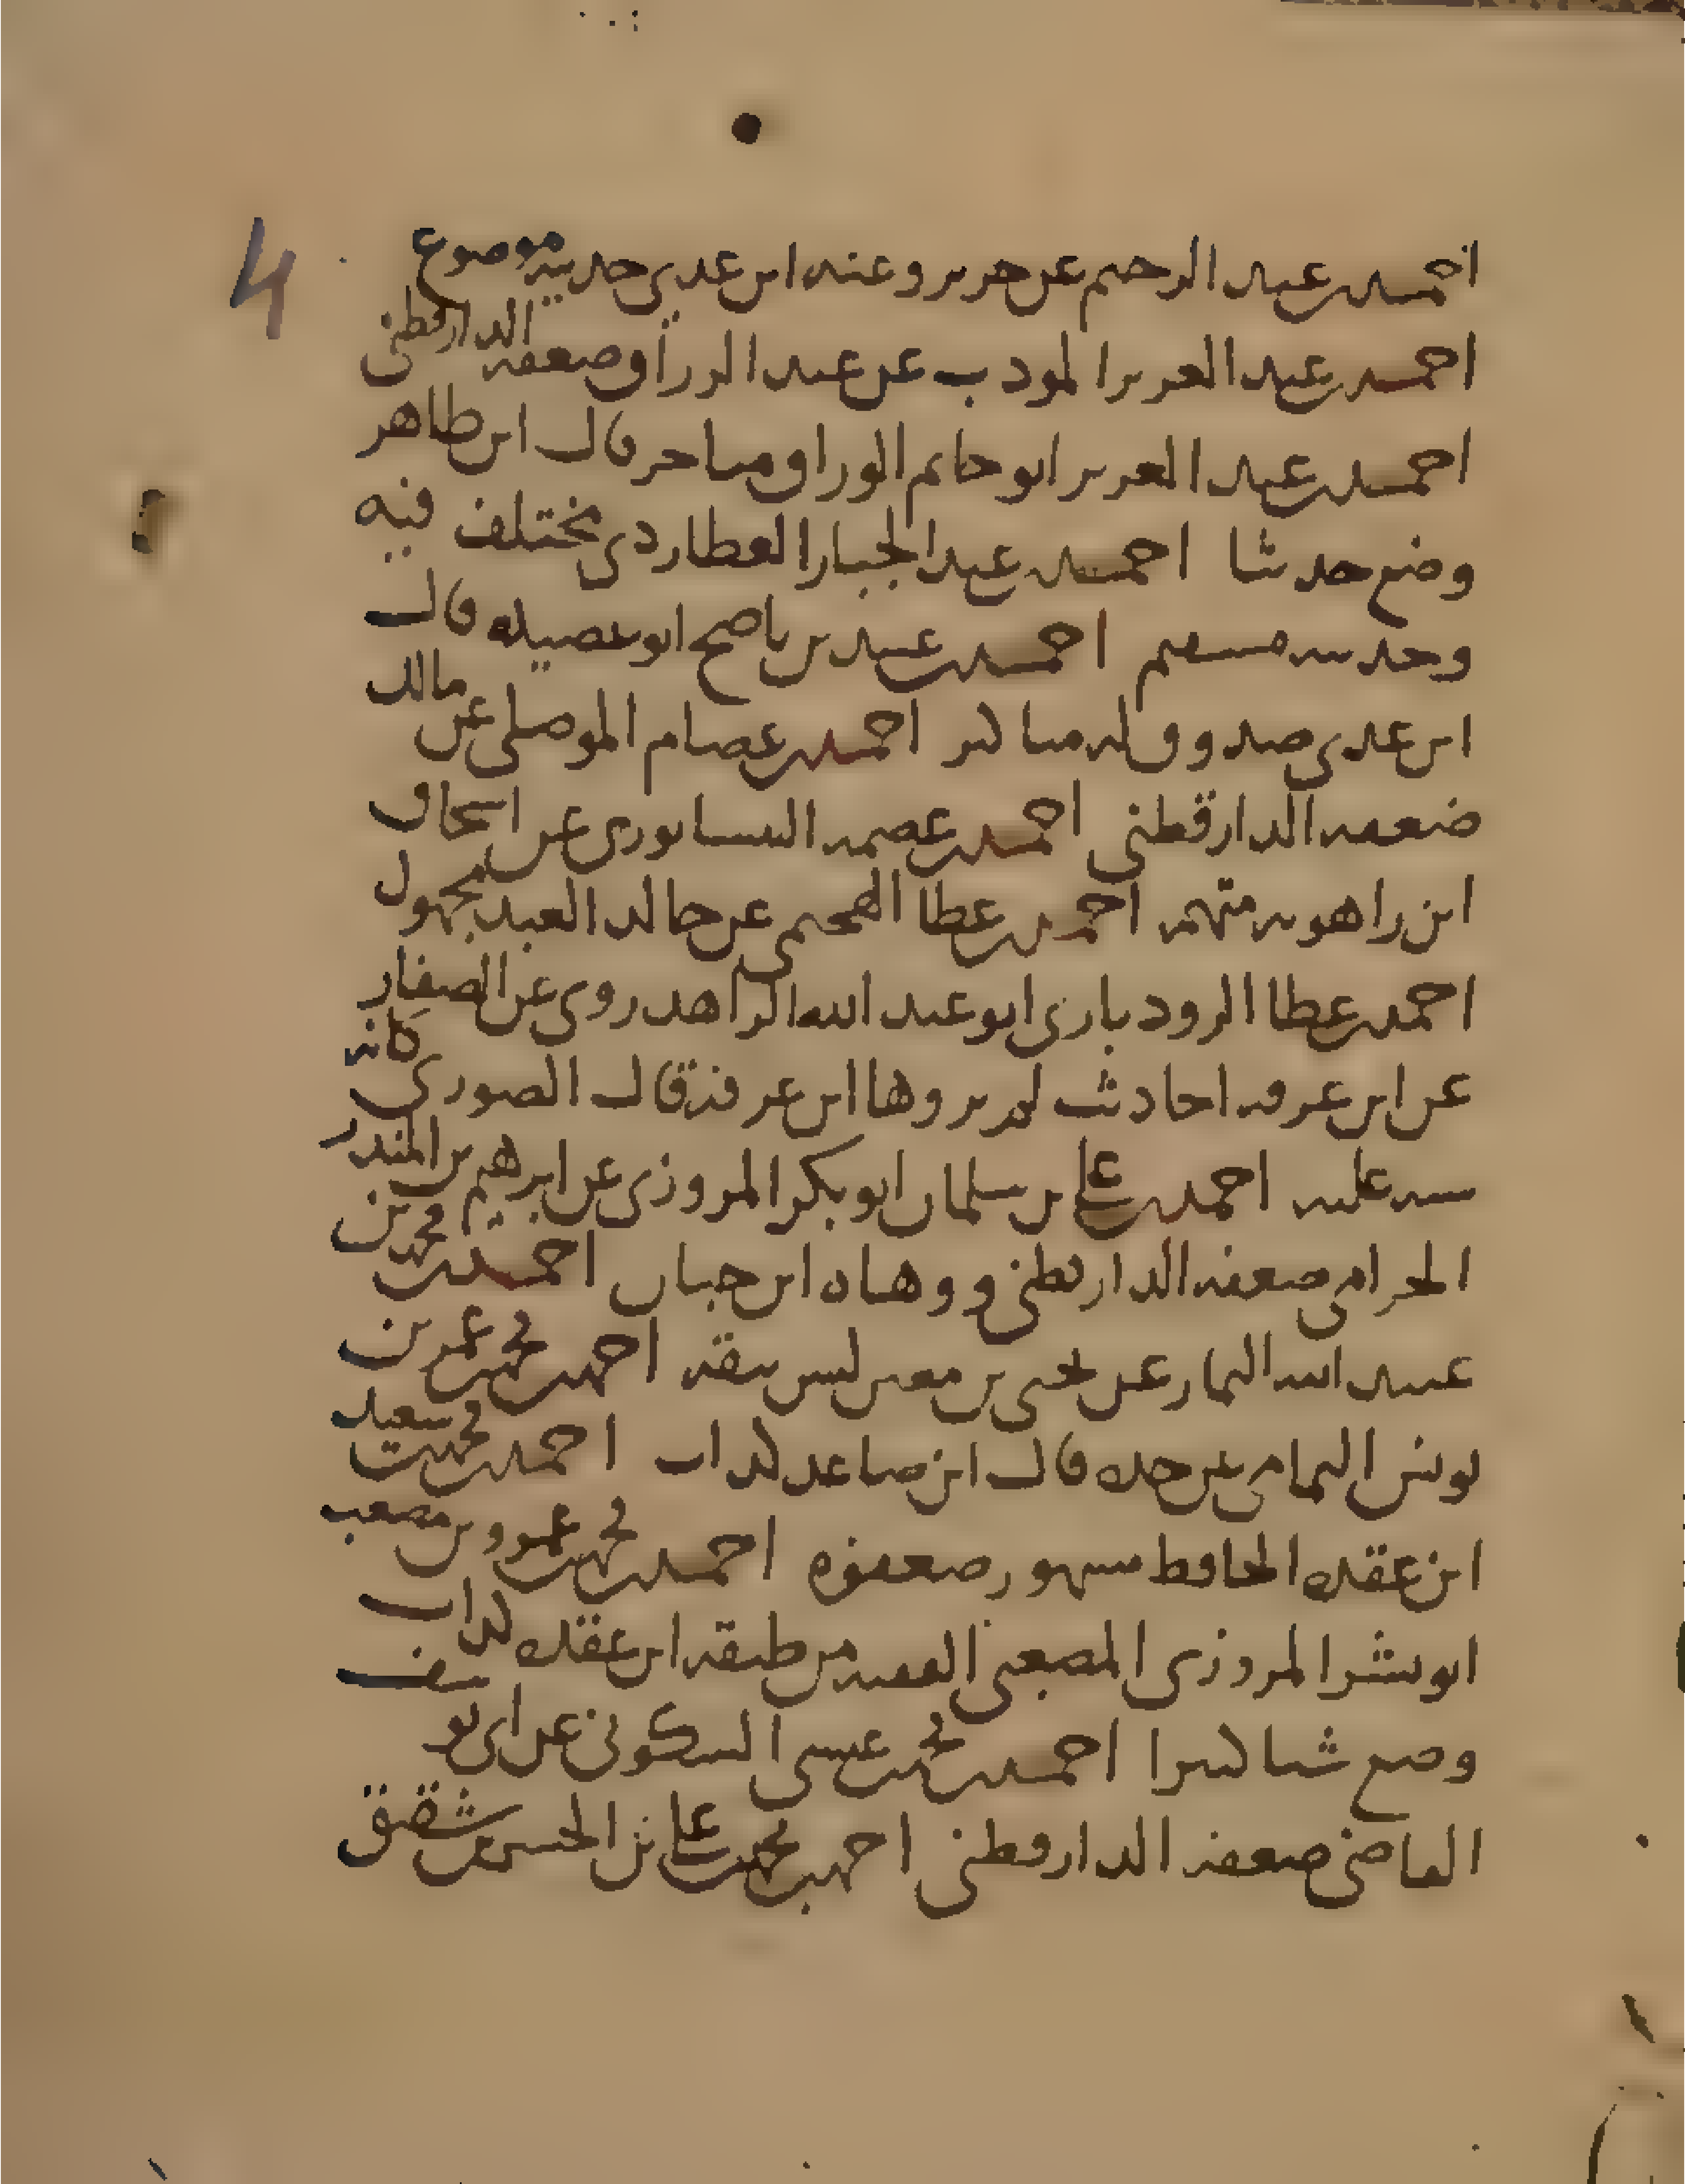 احمد بن عبد الرحيم عن جرير وعنه ابن عدي حديثه موضوع
احمد بن عبد العزيز المودب عن عبد الرزاق ضعفه الدارقطني
احمد بن عبد العزيز ابو حاتم الوراق متاخر قال ابن طاهر
وضع حديثا احمد بن عبد الجبار العطاردي مختلف فيه
وحديثه مستقيم احمد بن عبيد بن ناصح ابو عصيده قال
ابن عدي صدوق له مناكير احمد بن عصام الموصلي عن مالك
ضعفه الدارقطني احمد بن عصمه النيسابوري عن اسحاق
ابن راهويه متهم احمد بن عطا الهجيمي عن خالد العبد مجهول
احمد بن عطا الرودباري ابو عبد الله الزاهد روى عن الصفار
عن ابن عرفه احاديث لم يروها ابن عرفة قال الصوري كانه
شبه عليه احمد بن علي بن سلمان ابو بكر المروزي عن ابرهيم بن المنذر
الحزامي ضعفه الدارقطني ووهاه ابن حبان احمد بن محمد بن
عبيد الله التمار عن يحيى بن معين ليس بثقه احمد بن محمد بن عمر بن
يونس اليمامي عن جده قال ابن صاعد كذاب احمد بن محمد بن سعيد
ابن عقده الحافظ مشهور ضعفوه احمد بن محمد بن عمرو بن مصعب
ابو بشر المروزي المصعبي الفقيه من طبقه ابن عقده كذاب
وضع شيا كثيرا احمد بن محمد بن عيسى السكوني عن ابي يوسف
القاضي ضعفه الدارقطني احمد بن محمد بن علي بن الحسن بن شقيق
4